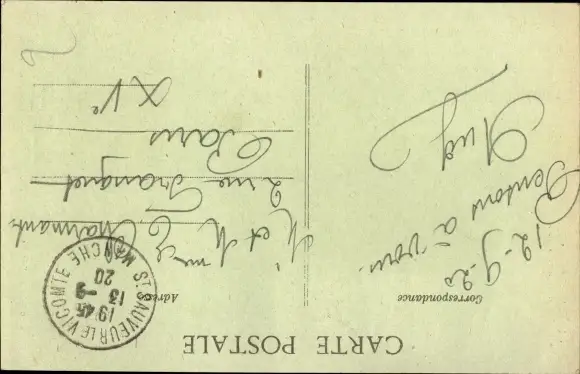 CARTE POSTALE
Correspondance
Adresse
12-9-20
Pensons à vous.
Aug
M et Mme E Charmant
2 rue Franquet
Paris
XVe
ST SAUVEUR LE VICOMTE MANCHE
19 45
13 -9
20